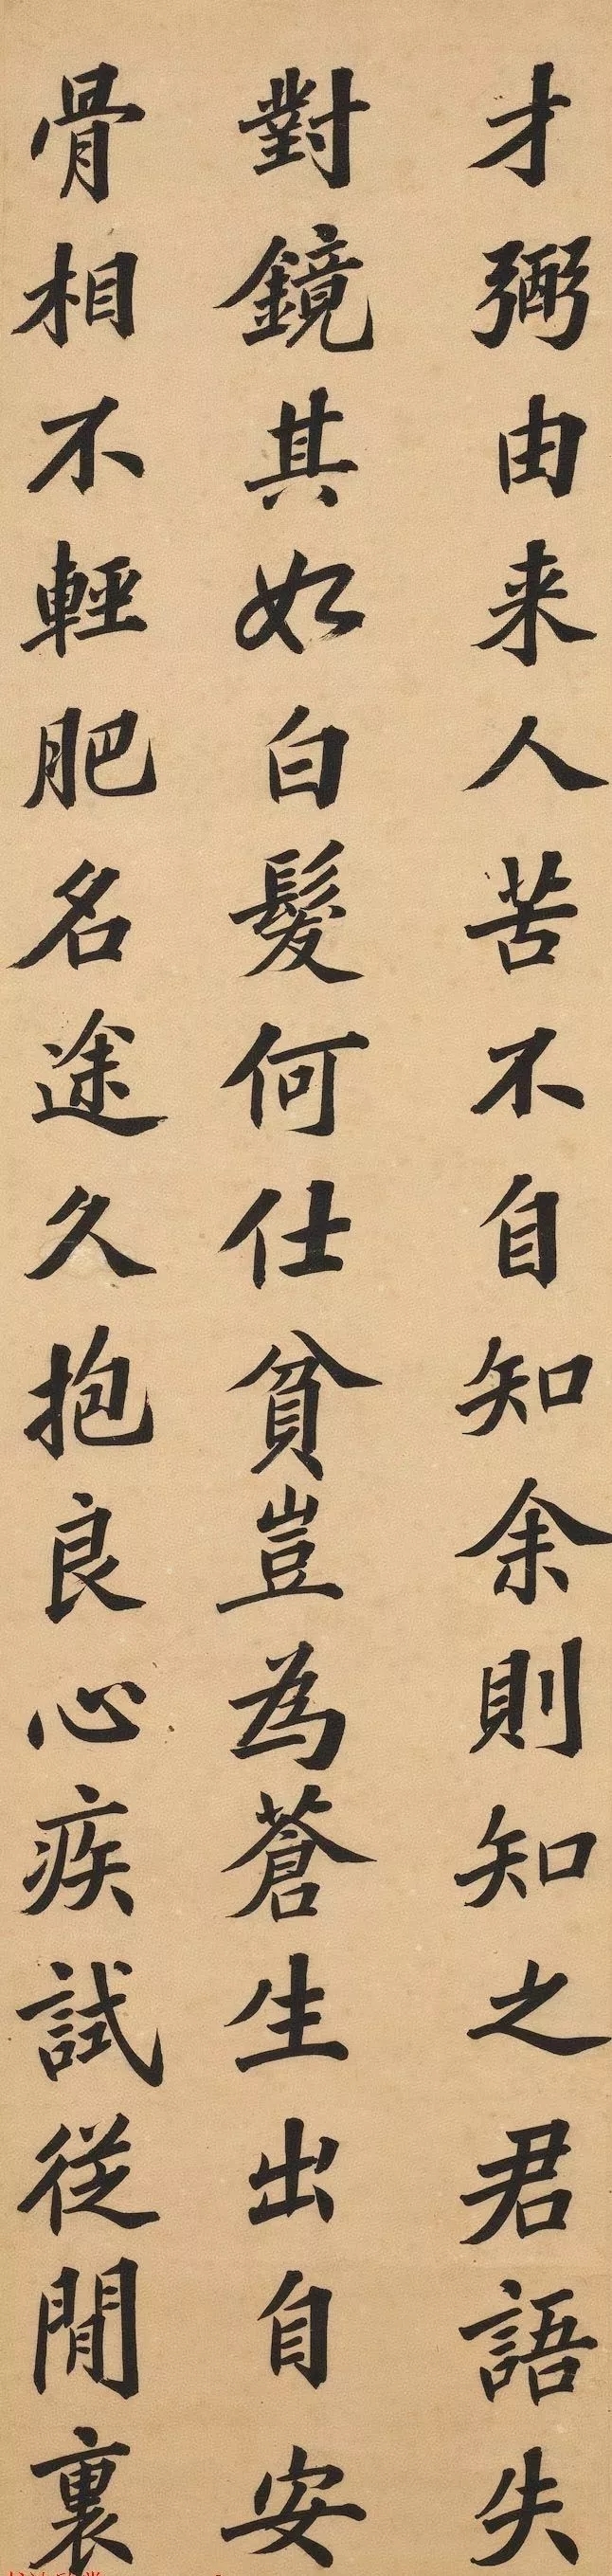 才弼由来人苦不自知余則知之君語失
對鏡其如白髮何仕貧豈為蒼生出自安
骨相不輕肥名途久抱良心疾試從閒裏